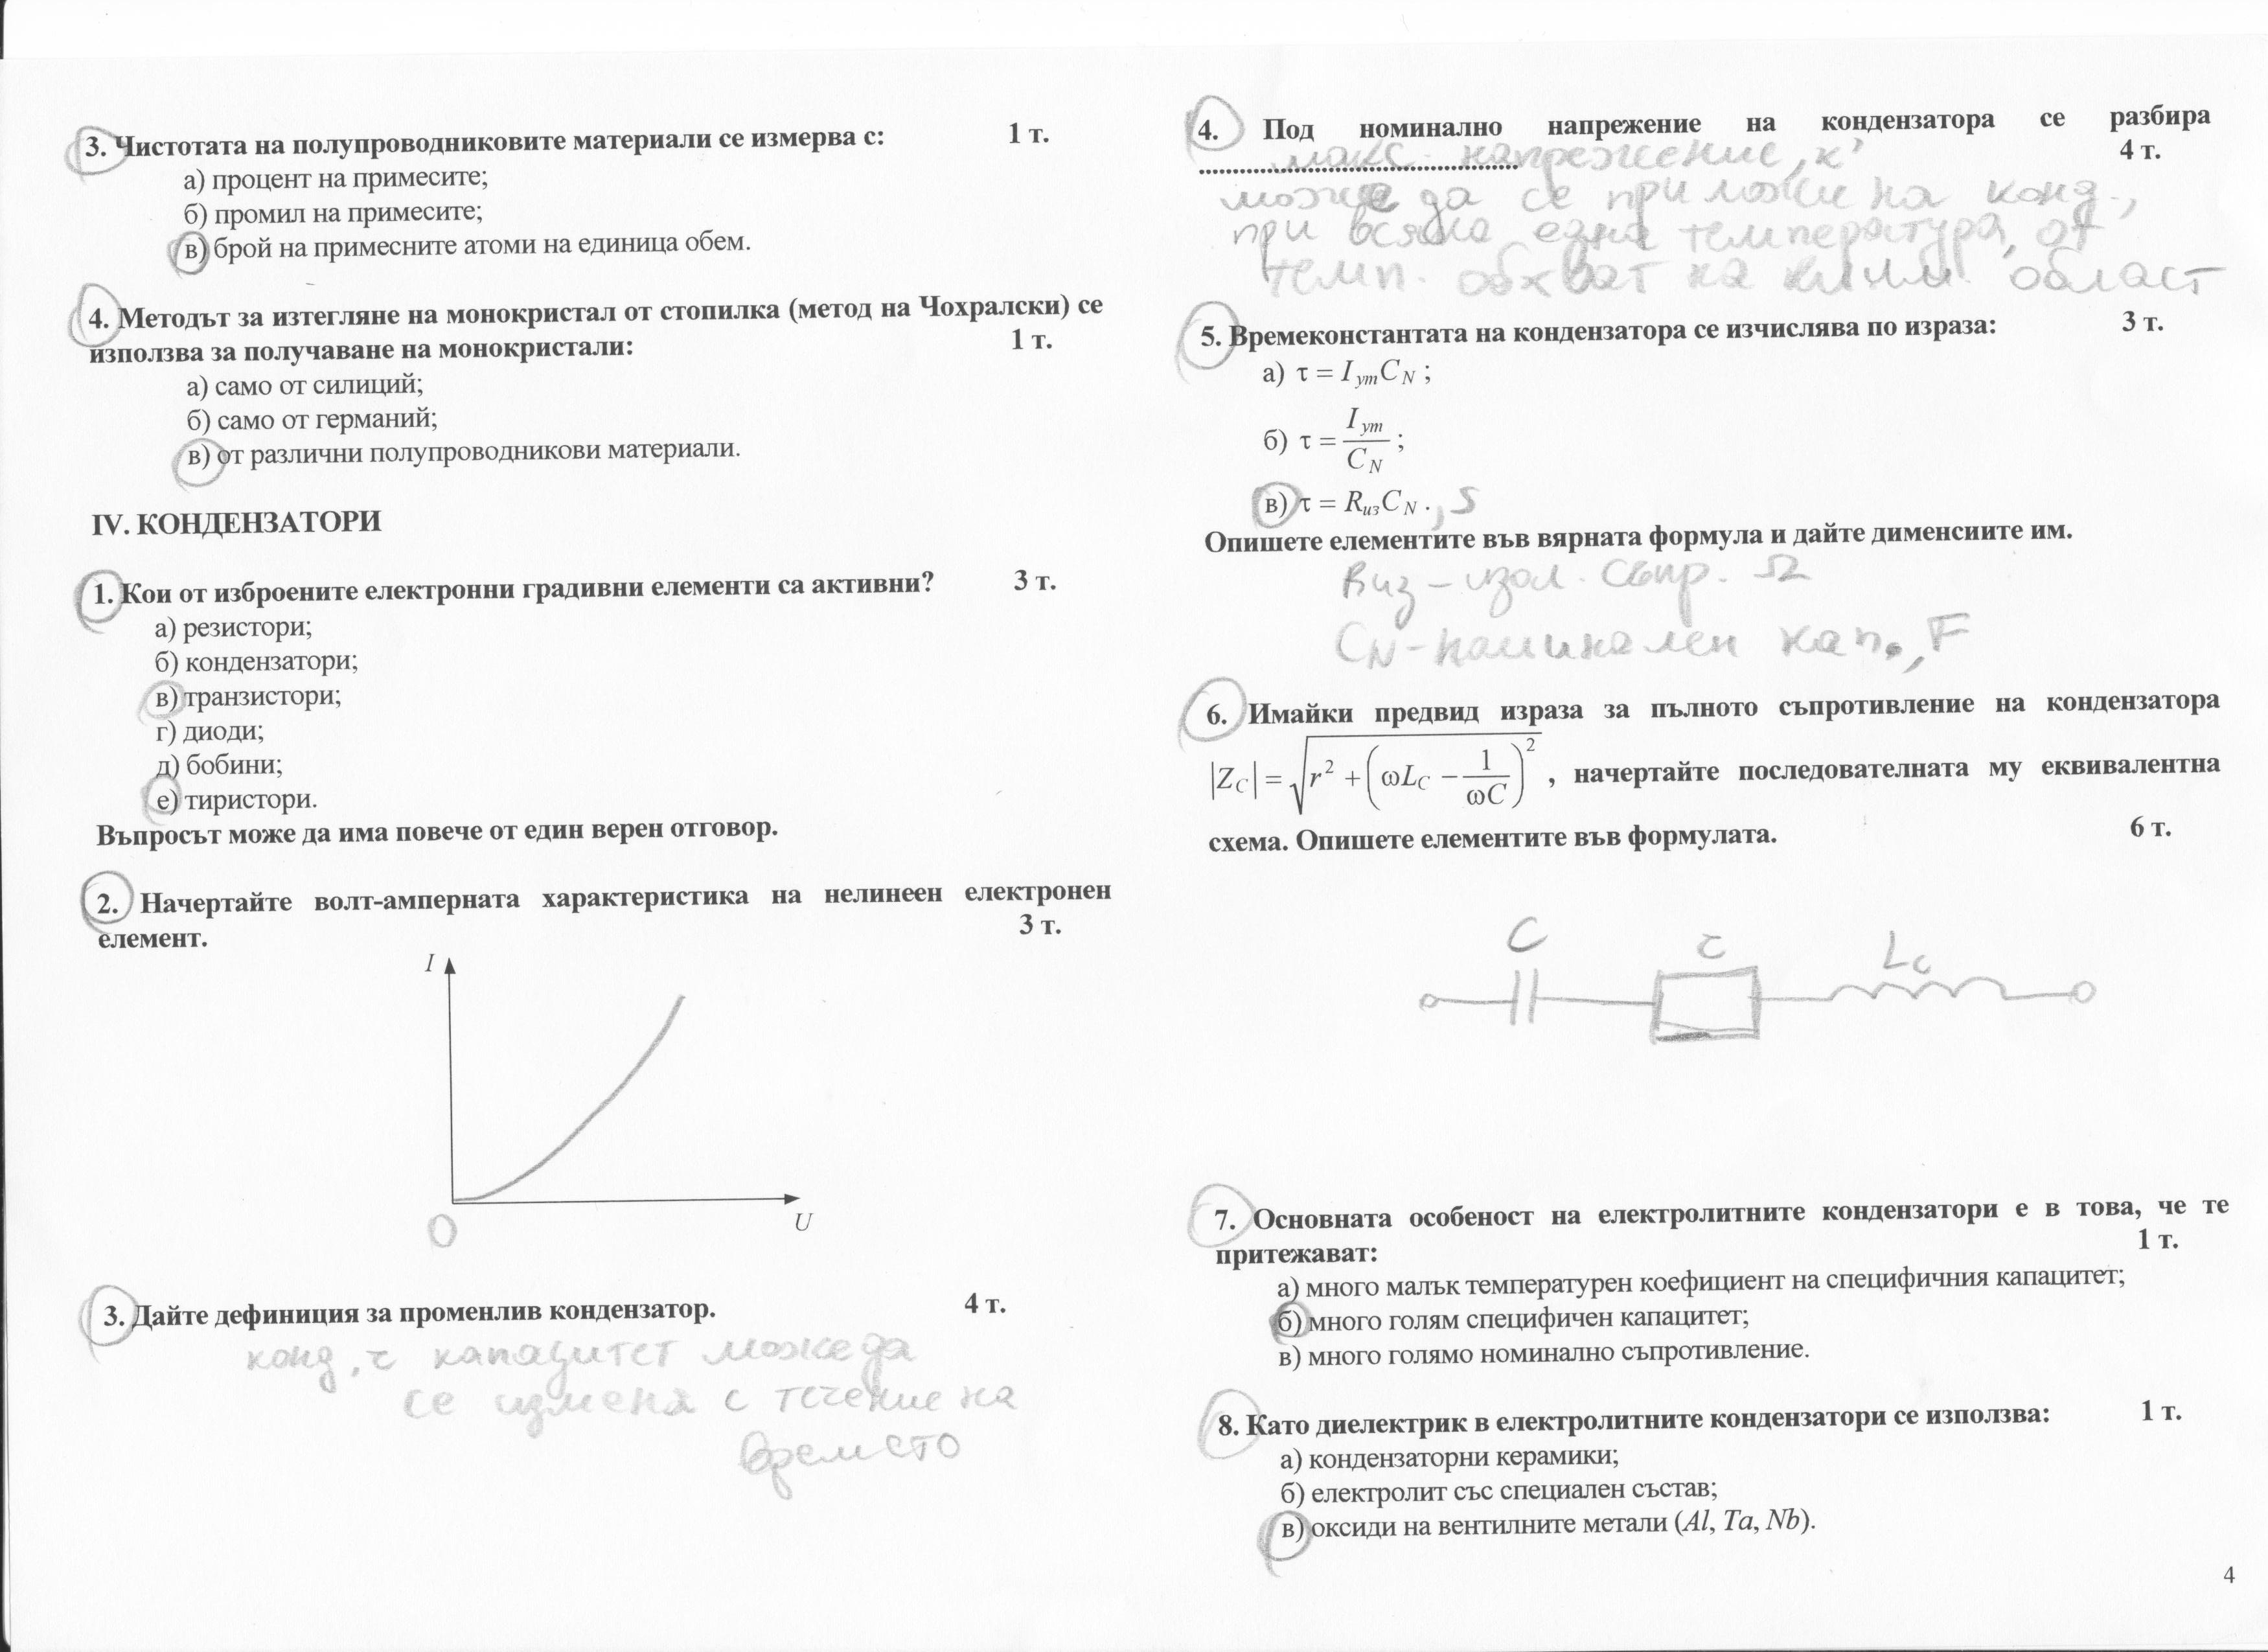 3. Чистотата на полупроводниковите материали се измерва с: 1 т.
а) процент на примесите;
б) промил на примесите;
в) брой на примесните атоми на единица обем.
4. Методът за изтегляне на монокристал от стопилка (метод на Чохралски) се
използва за получаване на монокристали: 1 т.
а) само от силиций;
б) само от германий;
в) от различни полупроводникови материали.
IV. КОНДЕНЗАТОРИ
1. Кои от изброените електронни градивни елементи са активни? 3 т.
а) резистори;
б) кондензатори;
в) транзистори;
г) диоди;
д) бобини;
е) тиристори.
Въпросът може да има повече от един верен отговор.
2. Начертайте волт-амперната характеристика на нелинеен електронен
елемент. 3 т.
I
U
0
3. Дайте дефиниция за променлив кондензатор. 4 т.
конд, ч капацитет може да
се изменя с течение на
времето
4. Под номинално напрежение на кондензатора се разбира
........................................ 4 т.
макс. напрежение, к'
може да се приложи на конд.,
при всяка една температура от
темп. обхват на клим. област
5. Времеконстантата на кондензатора се изчислява по израза: 3 т.
а) τ = I_ут C_N ;
б) τ = I_ут / C_N ;
в) τ = R_из C_N . , S
Опишете елементите във вярната формула и дайте дименсиите им.
Rиз – изол. съпр. Ω
C_N - номинален кап., F
6. Имайки предвид израза за пълното съпротивление на кондензатора
|Z_C| = √(r² + (ωL_C − 1/ωC)²) , начертайте последователната му еквивалентна
схема. Опишете елементите във формулата. 6 т.
C r L_C
7. Основната особеност на електролитните кондензатори е в това, че те
притежават: 1 т.
а) много малък температурен коефициент на специфичния капацитет;
б) много голям специфичен капацитет;
в) много голямо номинално съпротивление.
8. Като диелектрик в електролитните кондензатори се използва: 1 т.
а) кондензаторни керамики;
б) електролит със специален състав;
в) оксиди на вентилните метали (Al, Ta, Nb).
4